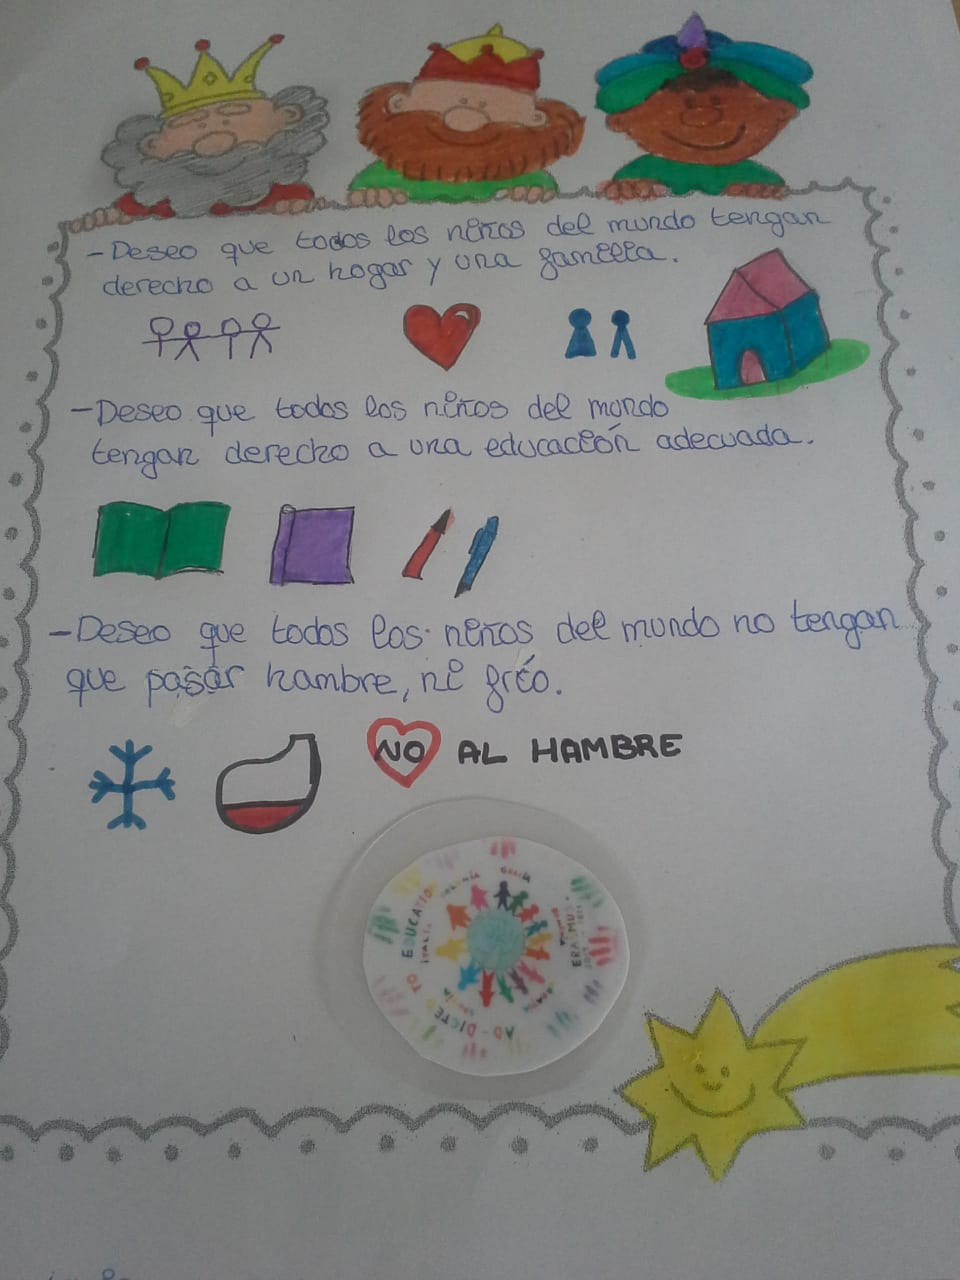 -Deseo que todos los niños del mundo tengan
derecho a un hogar y una familia.
-Deseo que todos los niños del mundo
tengan derecho a una educación adecuada.
-Deseo que todos los niños del mundo no tengan
que pasar hambre, ni frío.
NO AL HAMBRE
AD-DICTED TO EDUCATION
ERASMUS+
ITALIA
GRECIA